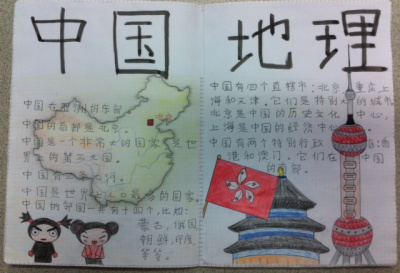 中国地理
中国在亚洲的东部
中国的首都是北京。
中国是一个非常大的国家，是世
界的第三大国。
中国有河。
中国是世界上人口最多的国家。
中国的邻国一共有十四个，比如：
蒙古，俄国
朝鲜，印度
等等。
中国有四个直辖市：北京，重庆，上
海和天津。它们是特别大的城市。
北京是中国的历史文化中心，
上海是中国的经济中心。
中国有两个特别行政：香
港和澳门。它们在中国
的南部。